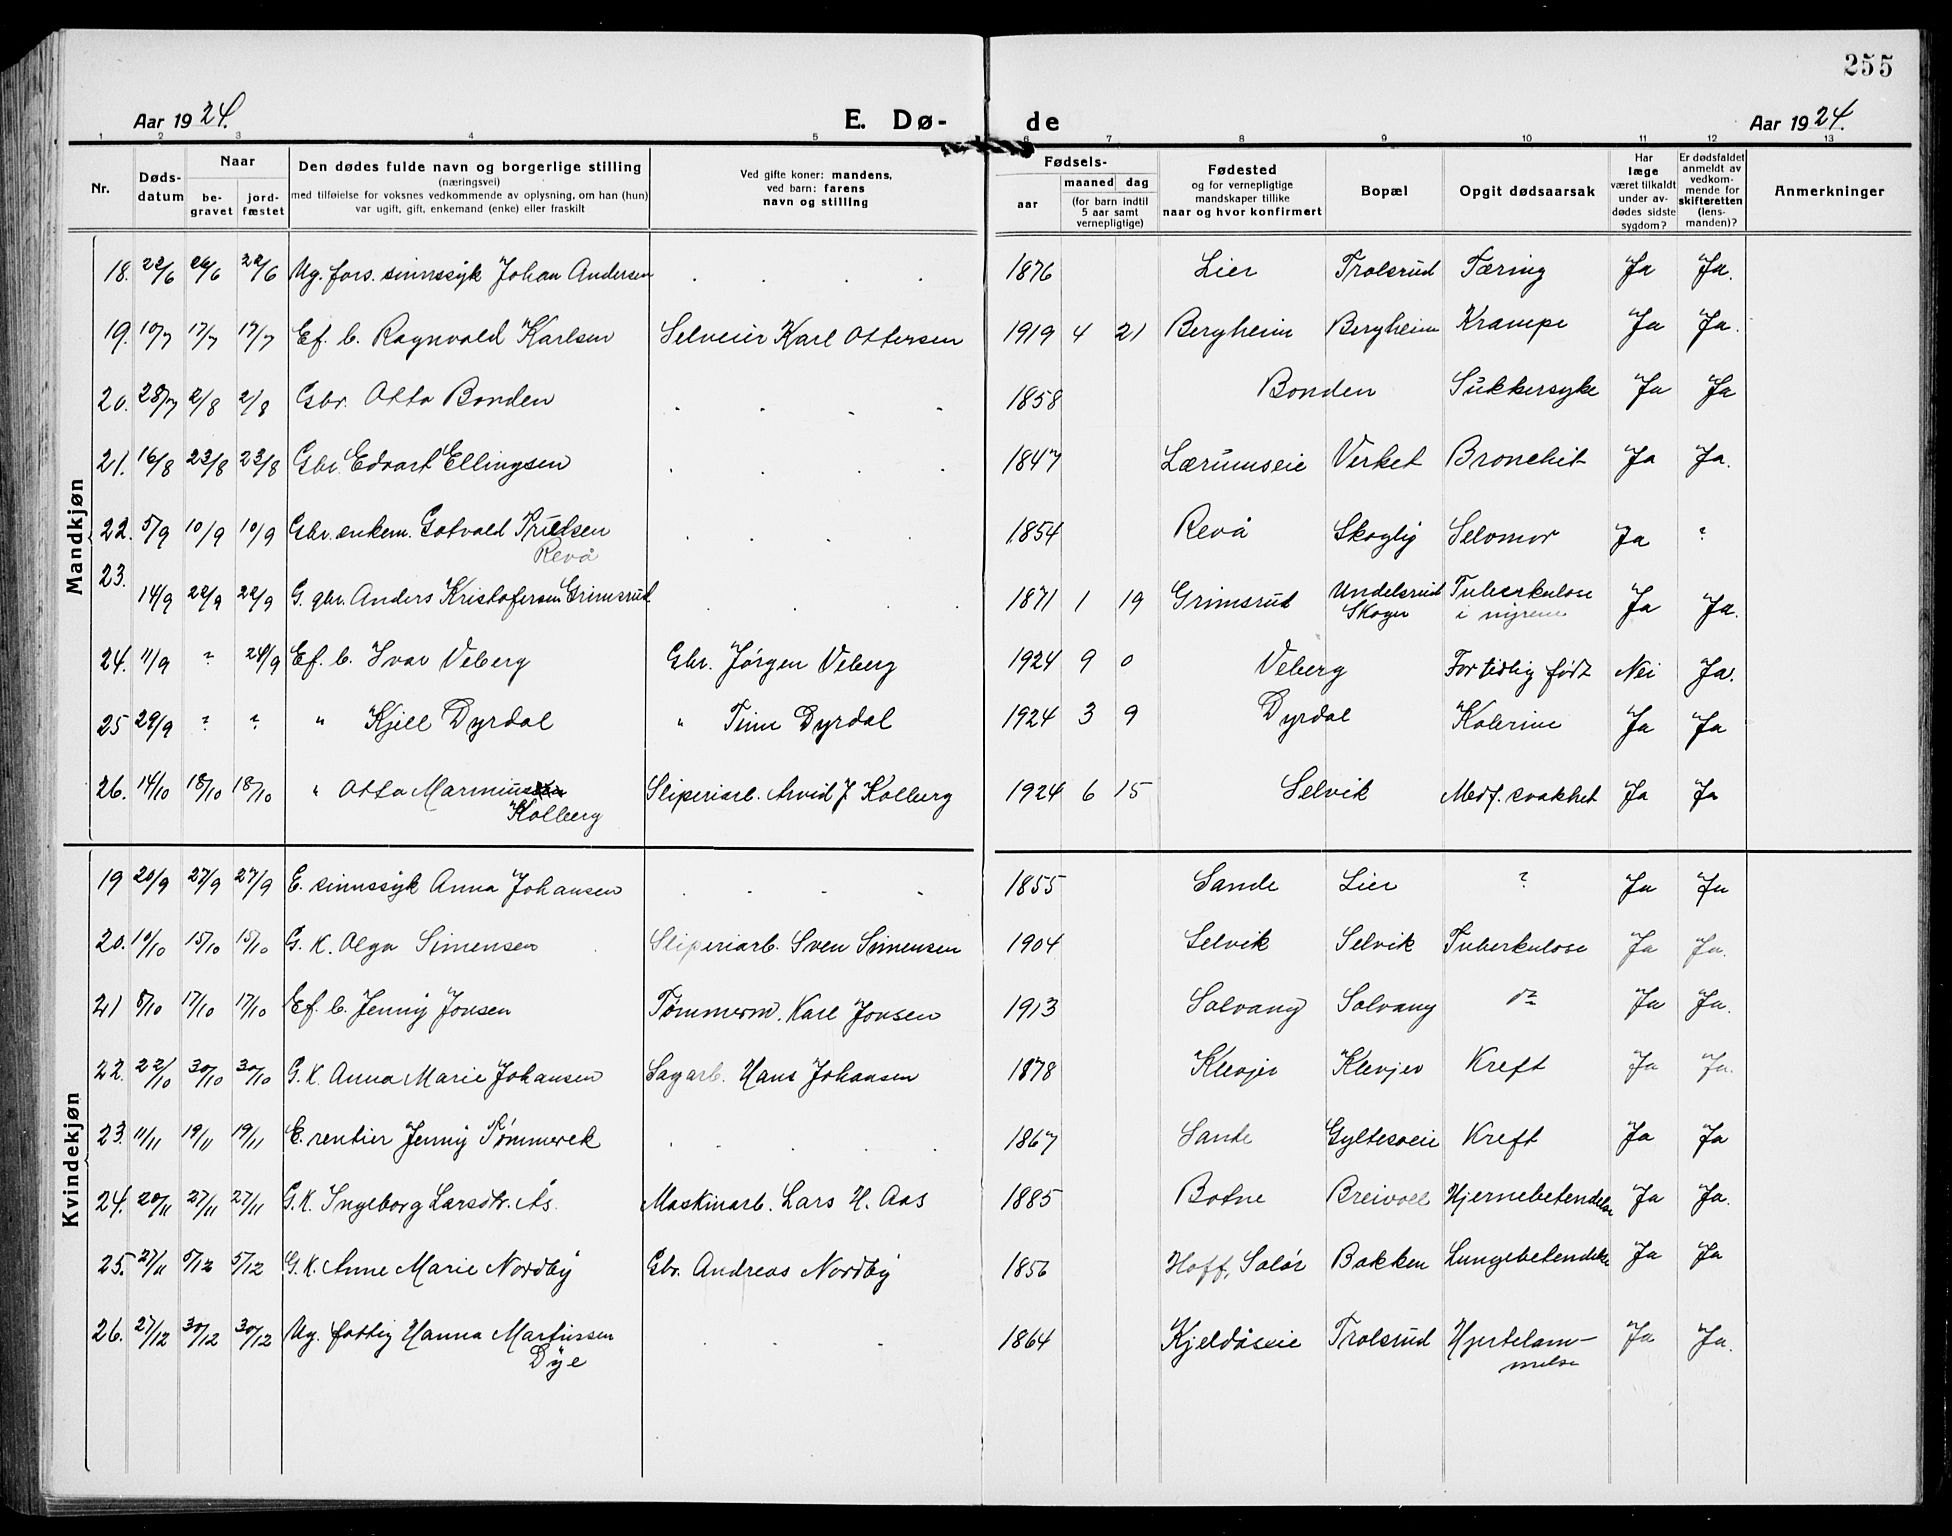 255
Aar 1924.
E. Dø-
de
Aar 1924.
1 2 3 4 5 6 7 8 9 10 11 12 13
Nr.
Døds-
datum
Naar
be-
gravet
jord-
fæstet
Den dødes fulde navn og borgerlige stilling
(næringsvei)
med tilføielse for voksnes vedkommende av oplysning, om han (hun)
var ugift, gift, enkemand (enke) eller fraskilt
Ved gifte koner: mandens,
ved barn: farens
navn og stilling
Fødsels-
aar
maaned dag
(for barn indtil
5 aar samt
vernepligtige)
Fødested
og for vernepligtige
mandskaper tillike
naar og hvor konfirmert
Bopæl
Opgit dødsaarsak
Har
læge
været tilkaldt
under av-
dødes sidste
sygdom?
Er dødsfaldet
anmeldt av
vedkom-
mende for
skifteretten
(lens-
manden)?
Anmerkninger
Mandkjøn
18. 22/6 26/6 22/6 Ug. fors. sinnssyk Johan Andersen . . . . 1876 Lier Trolsrud Tæring Ja Ja.
19. 10/7 17/7 17/7 Ef. b. Ragnvald Karlsen Selveier Karl Ottersen 1919 4 21 Bergheim Bergheim Krampe Ja Ja.
20. 28/7 2/8 2/8 Gbr. Otto Bonden . . . . 1858 Bonden Sukkersyke Ja Ja
21. 16/8 23/8 23/8 Gbr. Edvart Ellingsen . . . . 1847 Lærumseie Verket Bronchit Ja Ja.
22. 5/9 10/9 10/9 Gbr. enkem. Gotvald Truelsen . . . . 1854 Revå Skoglig Selvmor Ja ?
Revå
23. 14/9 22/9 22/9 G. gbr. Anders Kristofersen Grimsrud . . . . 1871 1 19 Grimsrud Undelsrud Tuberkulose Ja Ja.
Skoger i nyrene
24. 11/9 ? 24/9 Ef. b. Ivar Veberg Gbr. Jørgen Veberg 1924 9 0 Veberg For tidlig født Nei Ja.
25 29/9 ? ? " Kjell Dyrdal " Finn Dyrdal 1924 3 9 Dyrdal Kolerine Ja Ja
26. 14/10 18/10 18/10 " Otto Marinius Sliperiarb. Arvid J. Kolberg 1924 6 15 Selvik Medf. svakhet Ja Ja
Kolberg
Kvindekjøn
19 20/9 27/9 27/9 E. sinnssyk Anna Johansen . . . . 1855 Sande Lier ? Ja Ja
20. 10/10 15/10 15/10 G. K. Olga Simensen Sliperiarb. Sven Simensen 1904 Selvik Selvik Tuberkulose Ja Ja.
21 8/10 17/10 17/10 Ef. b. Jenny Jonsen Tømmerm. Karl Jonsen 1913 Solvang Solvang do Ja Ja.
22. 22/10 30/10 30/10 G. K. Anna Marie Johansen Sagarb. Hans Johansen 1878 Klevjer Klevjer Kreft Ja Ja.
23. 11/11 19/11 19/11 E. rentier Jenny Rømmerek . . . . 1867 Sande Gyltesøeie Kreft Ja Ja
24. 20/11 27/11 27/11 G. K. Ingeborg Larsdtr. Ås. Maskinarb. Lars H. Aas 1885 Botne Breivoll Hjernebetendelse Ja Ja.
25. 27/11 5/12 5/12 G. K. Anne Marie Nordby Gbr. Andreas Nordby 1856 Hoff, Solør Bakken Lungebetendelse Ja Ja
26. 27/12 30/12 30/12 Ug. fattig Hanna Martinsen . . . 1864 Kjeldåseie Trolsrud Hjertelam- Ja Ja.
Dye melse